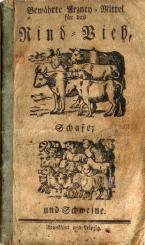 Bewährte Arzney-Mittel
für das
Rind-Vieh,
Schafe,
und Schweine.
Frankfurt und Leipzig.